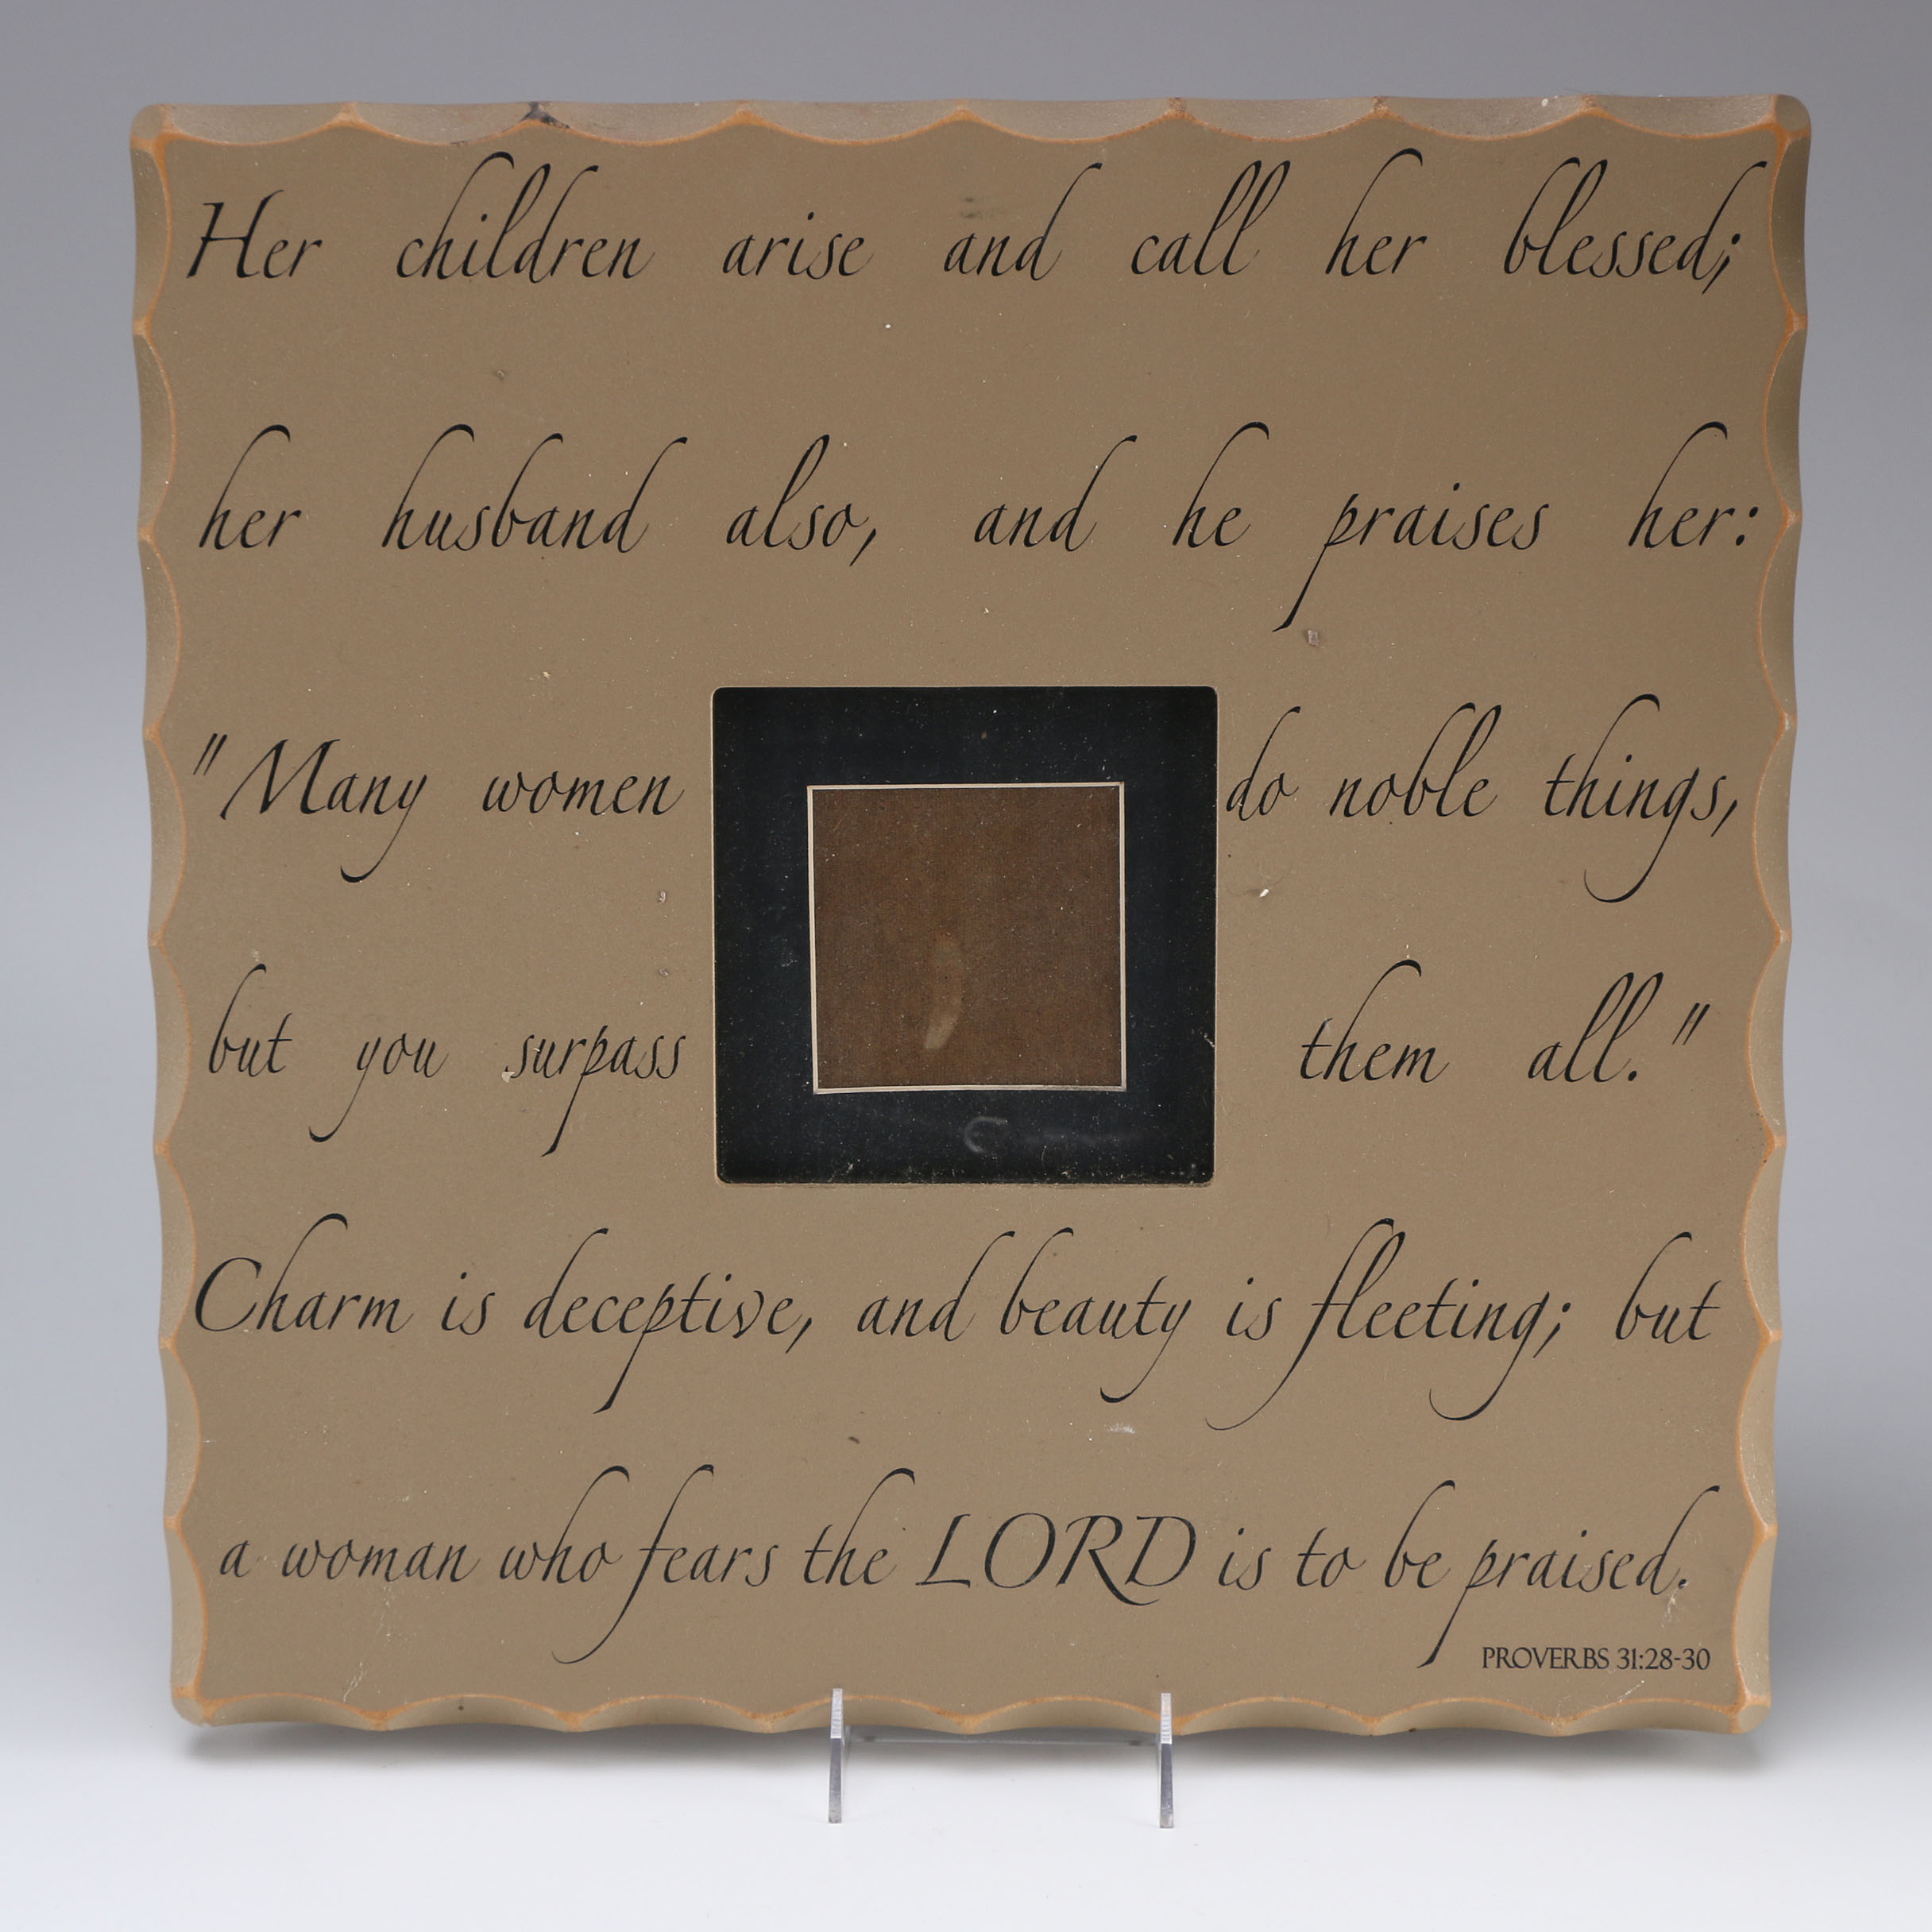 Her children arise and call her blessed;
her husband also, and he praises her:
"Many women do noble things,
but you surpass them all."
Charm is deceptive, and beauty is fleeting; but
a woman who fears the LORD is to be praised.
PROVERBS 31:28-30